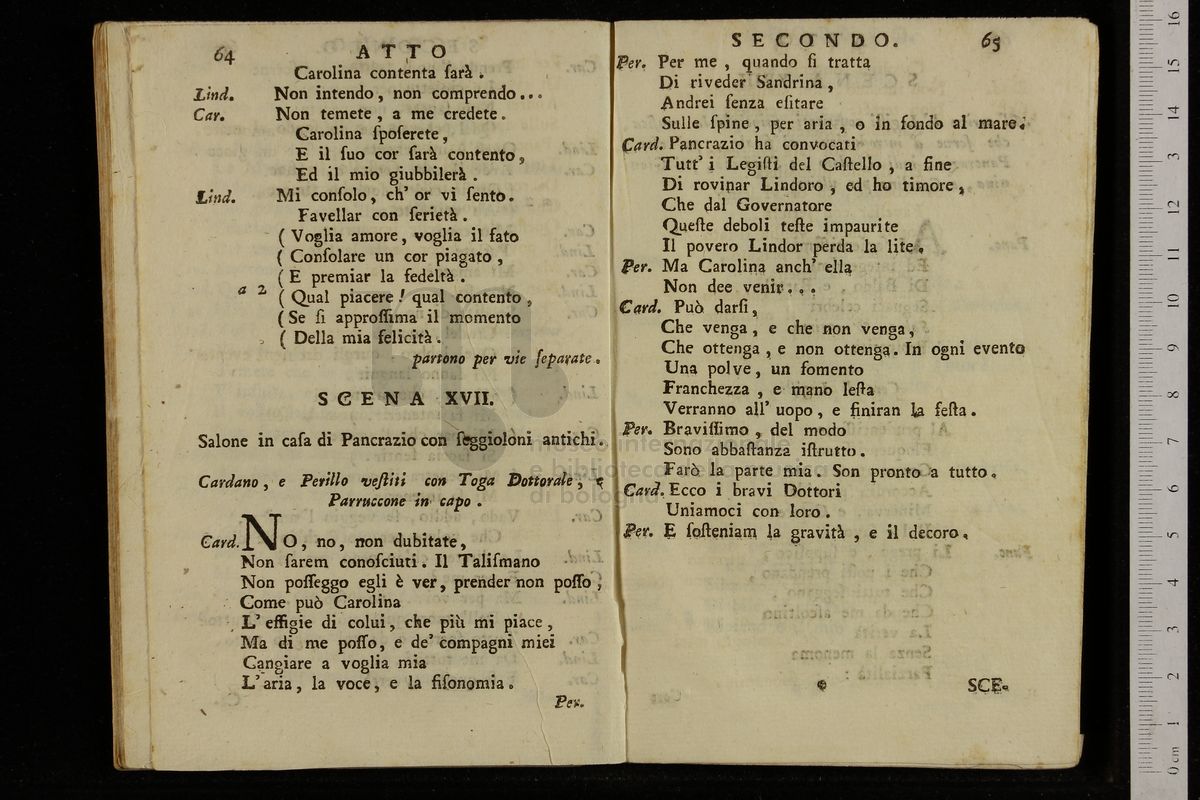 64
ATTO
Carolina contenta ſarà .
Lind. Non intendo, non comprendo...
Car. Non temete, a me credete.
Carolina ſpoſerete,
E il ſuo cor ſarà contento,
Ed il mio giubbilerà .
Lind. Mi conſolo, ch' or vi ſento.
Favellar con ſerietà .
( Voglia amore, voglia il fato
( Conſolare un cor piagato ,
( E premiar la fedeltà .
a 2 ( Qual piacere ! qual contento ,
( Se ſi approſſima il momento
( Della mia felicità .
partono per vie ſeparate .
SCENA XVII.
Salone in caſa di Pancrazio con ſeggioloni antichi .
Cardano , e Perillo veſtiti con Toga Dottorale , e
Parruccone in capo .
Card. NO, no, non dubitate,
Non ſarem conoſciuti. Il Taliſmano
Non poſſeggo egli è ver, prender non poſſo ,
Come può Carolina
L' effigie di colui, che più mi piace,
Ma di me poſſo, e de' compagni miei
Cangiare a voglia mia
L'aria, la voce, e la fiſonomia .
Per.
SECONDO.
65
Per. Per me , quando ſi tratta
Di riveder Sandrina ,
Andrei ſenza eſitare
Sulle ſpine , per aria , o in fondo al mare.
Card. Pancrazio ha convocati
Tutt' i Legiſti del Caſtello , a fine
Di rovinar Lindoro , ed ho timore ,
Che dal Governatore
Queſte deboli teſte impaurite
Il povero Lindor perda la lite .
Per. Ma Carolina anch' ella
Non dee venir...
Card. Può darſi,
Che venga , e che non venga,
Che ottenga , e non ottenga. In ogni evento
Una polve, un fomento
Franchezza , e mano leſta
Verranno all' uopo , e finiran la feſta .
Per. Braviſſimo , del modo
Sono abbaſtanza iſtrutto.
Farò la parte mia. Son pronto a tutto.
Card. Ecco i bravi Dottori
Uniamoci con loro .
Per. E ſoſteniam la gravità , e il decoro.
SCE-
museo internazionale
e biblioteca della musica
di bologna
0 cm 1 2 3 4 5 6 7 8 9 10 11 12 13 14 15 16